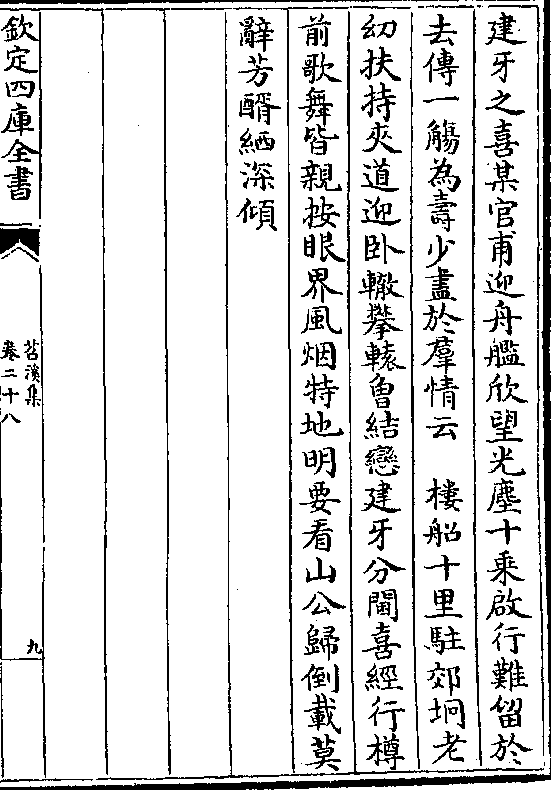 建牙之喜某官甫迎舟艦欣望光塵十乘啟行難留於
去傳一觴為壽少盡於羣情云　樓船十里駐郊坰老
幼扶持夾道迎卧轍攀轅曾結戀建牙分閫喜經行樽
前歌舞皆親按眼界風烟特地明要看山公歸倒載莫
辭芳醑緬深傾
欽定四庫全書
苕溪集
卷二十八
九